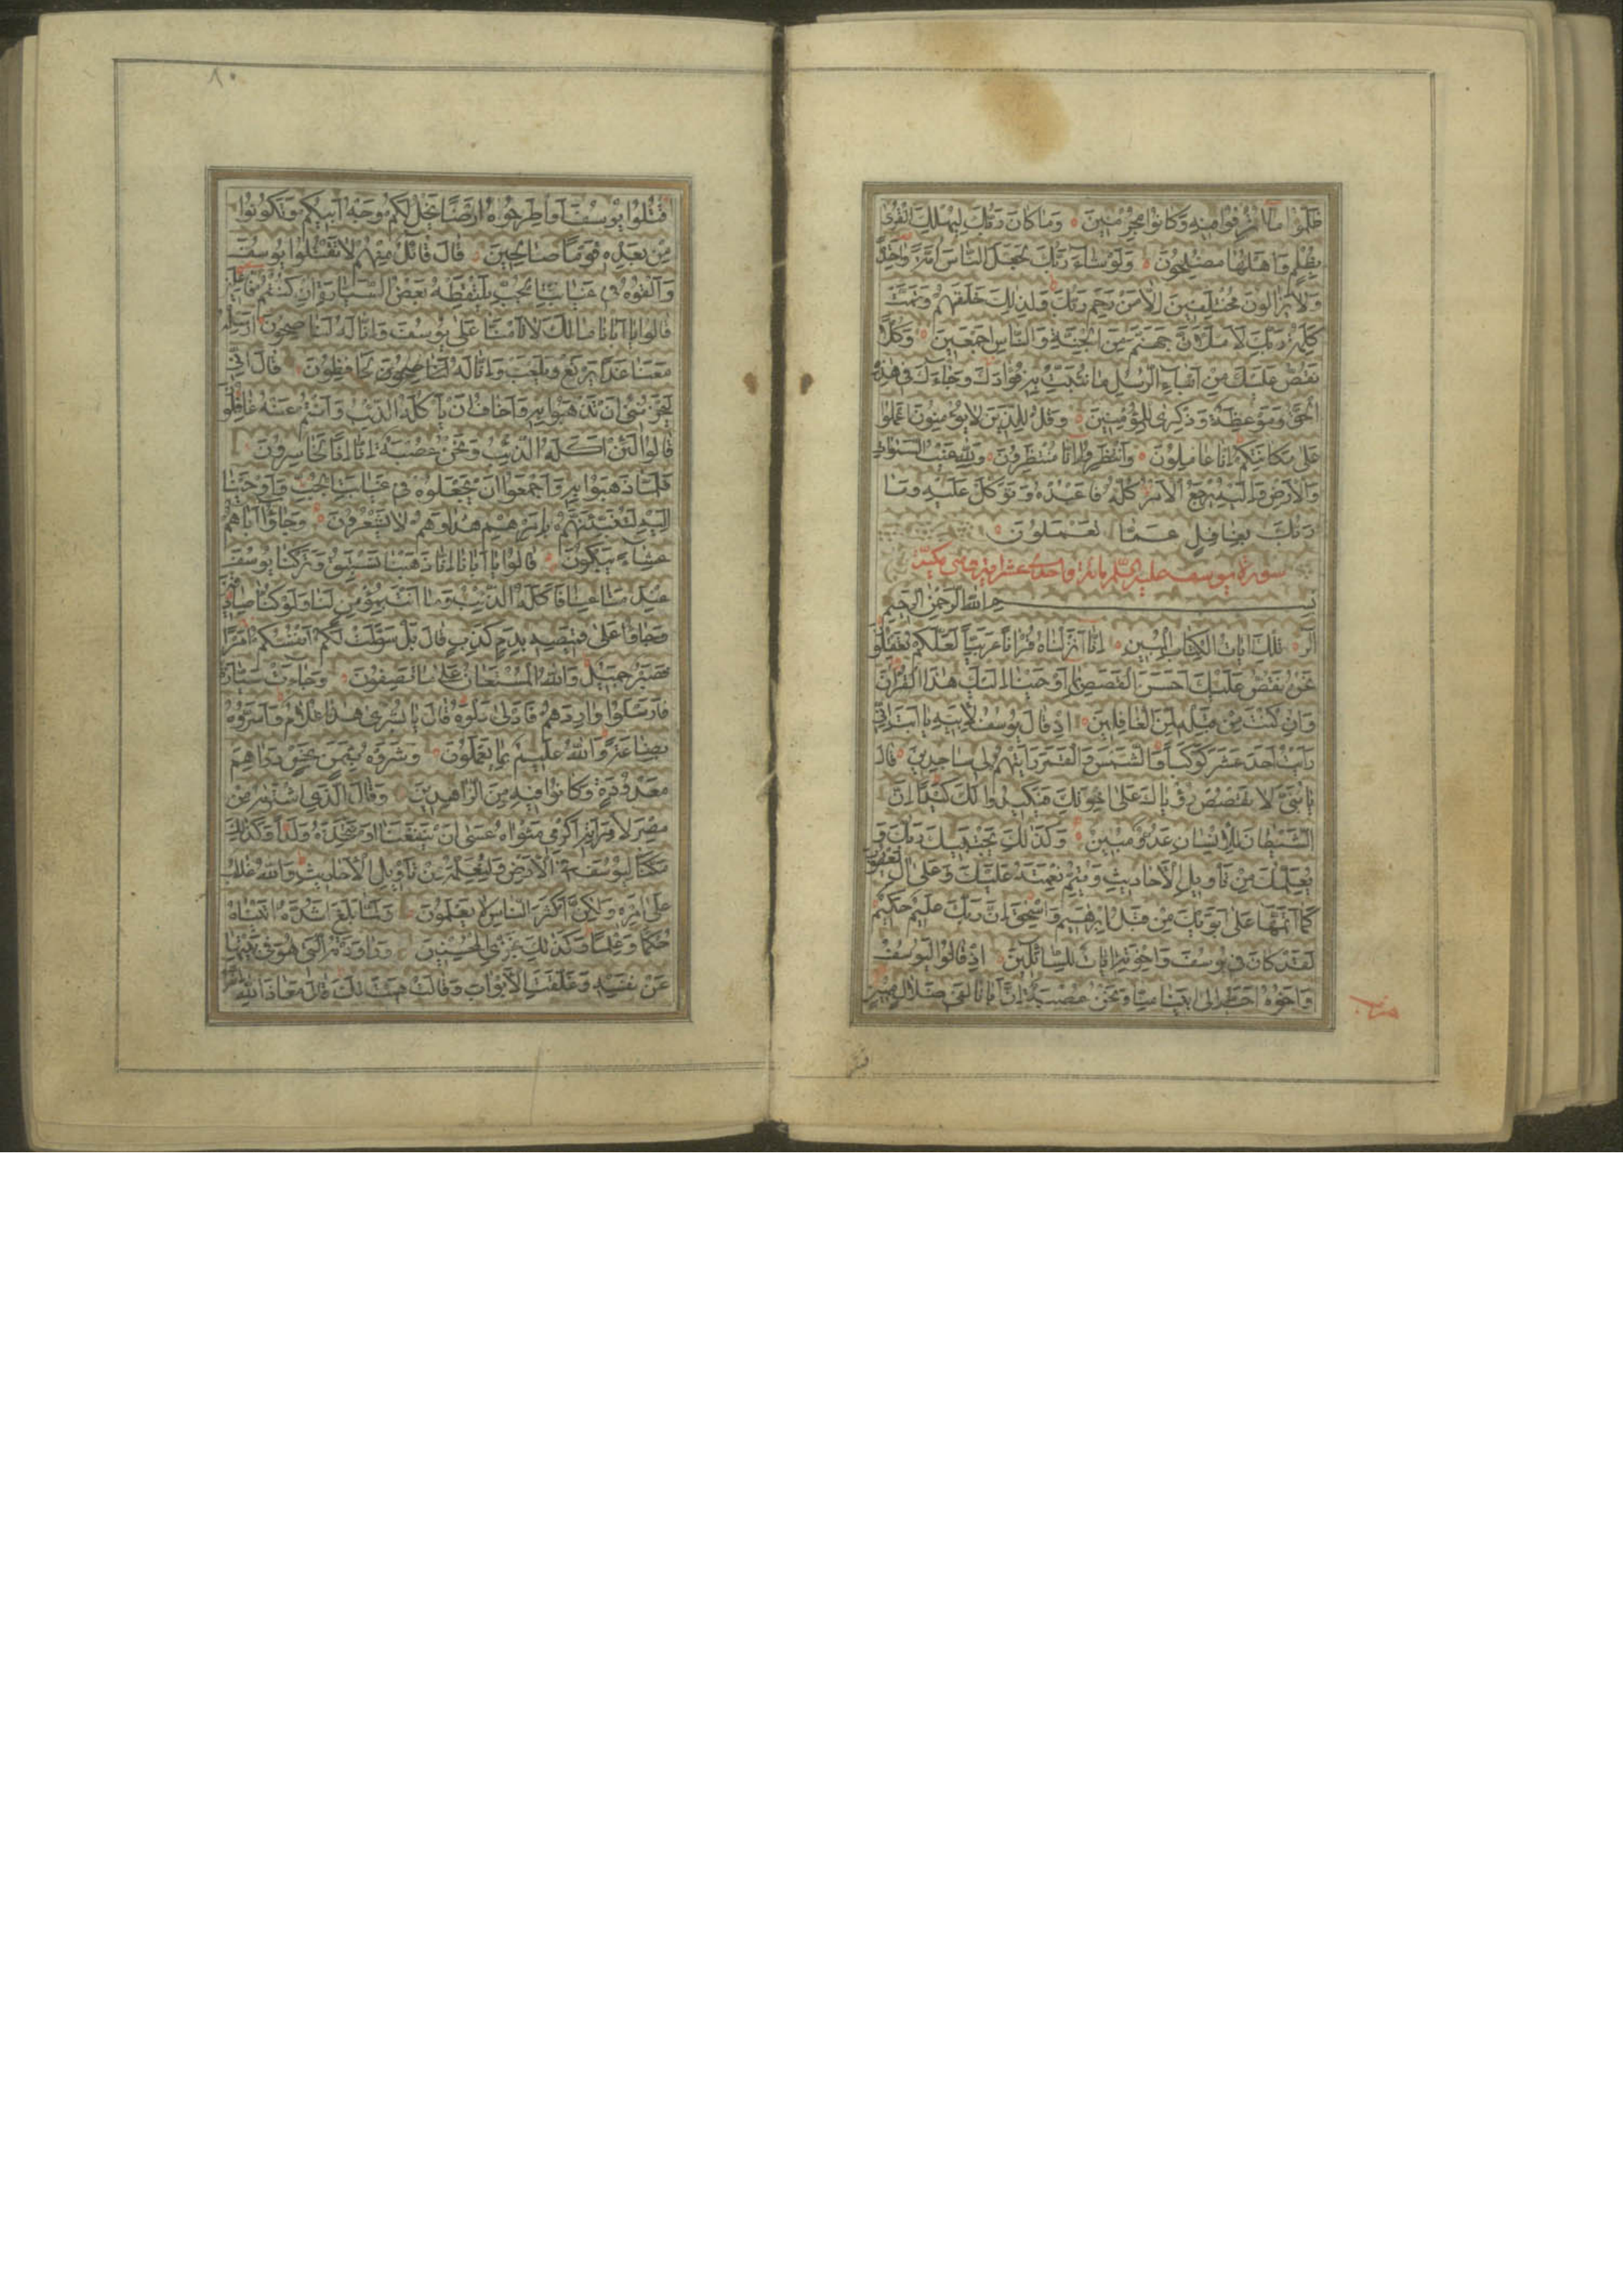 ظلموا ما اترفوا فيه وكانوا مجرمين وما كان ربك ليهلك القرى
بظلم واهلها مصلحون ولو شاء ربك لجعل الناس امة واحدة
ولا يزالون مختلفين الا من رحم ربك ولذلك خلقهم وتمت
كلمة ربك لاملان جهنم من الجنة والناس اجمعين وكلا
نقص عليك من انباء الرسل ما نثبت به فؤادك وجاءك في هذه
الحق وموعظة وذكرى للمؤمنين وقل للذين لا يؤمنون اعملوا
على مكانتكم انا عاملون وانتظروا انا منتظرون ولله غيب السموات
والارض واليه يرجع الامر كله فاعبده وتوكل عليه وما
ربك بغافل عما تعملون
سورة يوسف عليه السلم مائة واحدى عشر اية وهي مكية
بسم الله الرحمن الرحيم
الر تلك ايات الكتاب المبين انا انزلناه قرانا عربيا لعلكم تعقلون
نحن نقص عليك احسن القصص بما اوحينا اليك هذا القران
وان كنت من قبله لمن الغافلين اذ قال يوسف لابيه يا ابت اني
رايت احد عشر كوكبا والشمس والقمر رايتهم لي ساجدين قال
يا بني لا تقصص رؤياك على اخوتك فيكيدوا لك كيدا ان
الشيطان للانسان عدو مبين وكذلك يجتبيك ربك و
يعلمك من تاويل الاحاديث ويتم نعمته عليك وعلى ال يعقوب
كما اتمها على ابويك من قبل ابرهيم واسحق ان ربك عليم حكيم
لقد كان في يوسف واخوته ايات للسائلين اذ قالوا ليوسف
واخوه احب الى ابينا منا ونحن عصبة ان ابانا لفي ضلال مبين
٨٠
اقتلوا يوسف او اطرحوه ارضا يخل لكم وجه ابيكم وتكونوا
من بعده قوما صالحين قال قائل منهم لا تقتلوا يوسف
والقوه في غيابت الجب يلتقطه بعض السيارة ان كنتم فاعلين
قالوا يا ابانا مالك لا تامنا على يوسف وانا له لنا صحون ارسله
معنا غدا يرتع ويلعب وانا له لحافظون قال اني
ليحزنني ان تذهبوا به واخاف ان ياكله الذئب وانتم عنه غافلون
قالوا لئن اكله الذئب ونحن عصبة انا اذا لخاسرون
فلما ذهبوا به واجمعوا ان يجعلوه في غيابت الجب واوحينا
اليه لتنبئنهم بامرهم هذا وهم لا يشعرون وجاؤا اباهم
عشاء يبكون قالوا يا ابانا انا ذهبنا نستبق وتركنا يوسف
عند متاعنا فاكله الذئب وما انت بمؤمن لنا ولو كنا صادقين
وجاؤا على قميصه بدم كذب قال بل سولت لكم انفسكم امرا
فصبر جميل والله المستعان على ما تصفون وجاءت سيارة
فارسلوا واردهم فادلى دلوه قال يا بشرى هذا غلام واسروه
بضاعة والله عليم بما يعملون وشروه بثمن بخس دراهم
معدودة وكانوا فيه من الزاهدين وقال الذي اشتريه من
مصر لامراته اكرمي مثواه عسى ان ينفعنا او نتخذه ولدا وكذلك
مكنا ليوسف في الارض ولنعلمه من تاويل الاحاديث والله غالب
على امره ولكن اكثر الناس لا يعلمون ولما بلغ اشده اتيناه
حكما وعلما وكذلك نجزي المحسنين وراودته التي هو في بيتها
عن نفسه وغلقت الابواب وقالت هيت لك قال معاذ الله